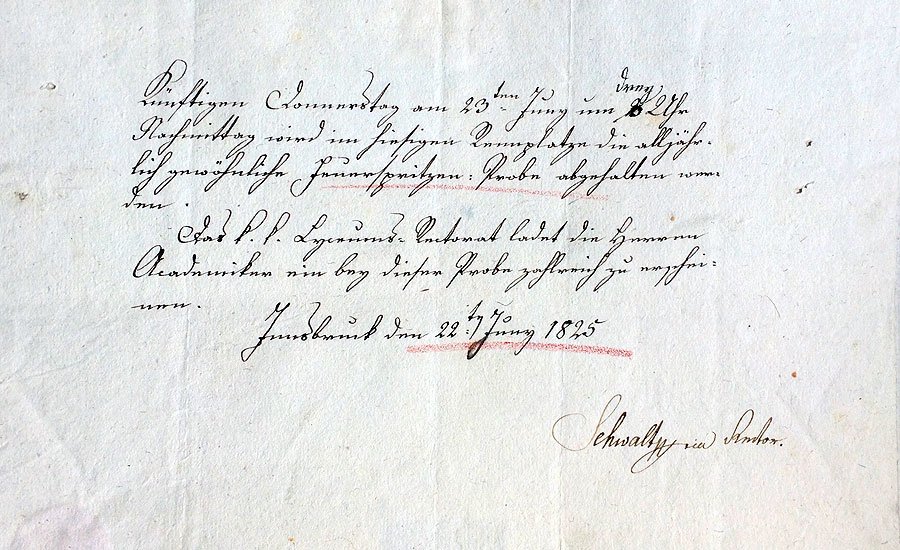 Künftigen Donnerstag am 23ten Juny um drey Uhr
Nachmittag wird im hiesigen Rennplatze die alljähr-
lich gewöhnliche Feuerspritzen-Probe abgehalten wer-
den.
Das k. k. Lyceums-Rectorat ladet die Herren
Academiker ein bey dieser Probe zahlreich zu erschei-
nen.
Innsbruck den 22ten Juny 1825
Rector.